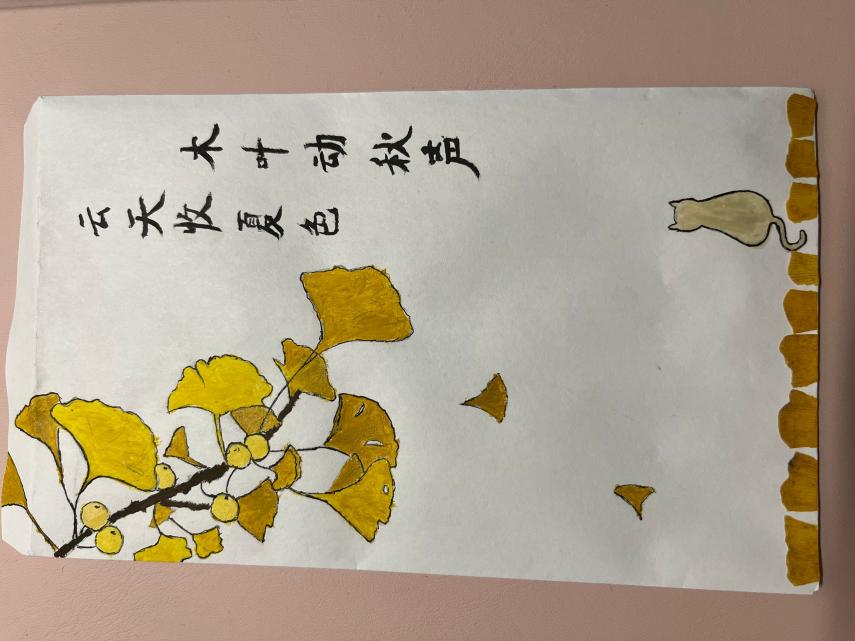 云天收夏色
木叶动秋声